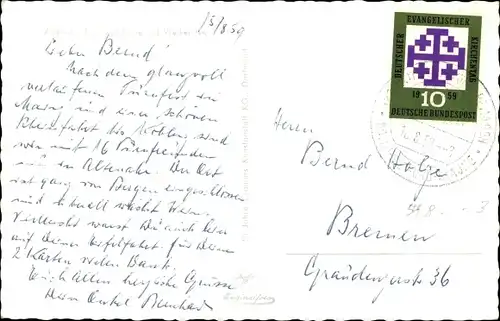 15/8 59
Lieber Bernd!
Nach dem glanzvoll
verlaufenen Turnfest in
und einer schönen
Rheinfahrt bis Koblenz sind
wir mit 16 Turnfreunden
nun in Altenahr. Der Ort
ist ganz von Bergen eingeschlossen
und
Vielleicht warst Du auch hier
auf Deiner Eifelfahrt. Für Deine
2 Karten vielen Dank.
Euch Allen herzliche Grüsse
Dein Onkel Bernhard
DEUTSCHER EVANGELISCHER KIRCHENTAG
1959
10
DEUTSCHE BUNDESPOST
Herrn
Bernd Holze
Bremen
Graudenzerstr 36